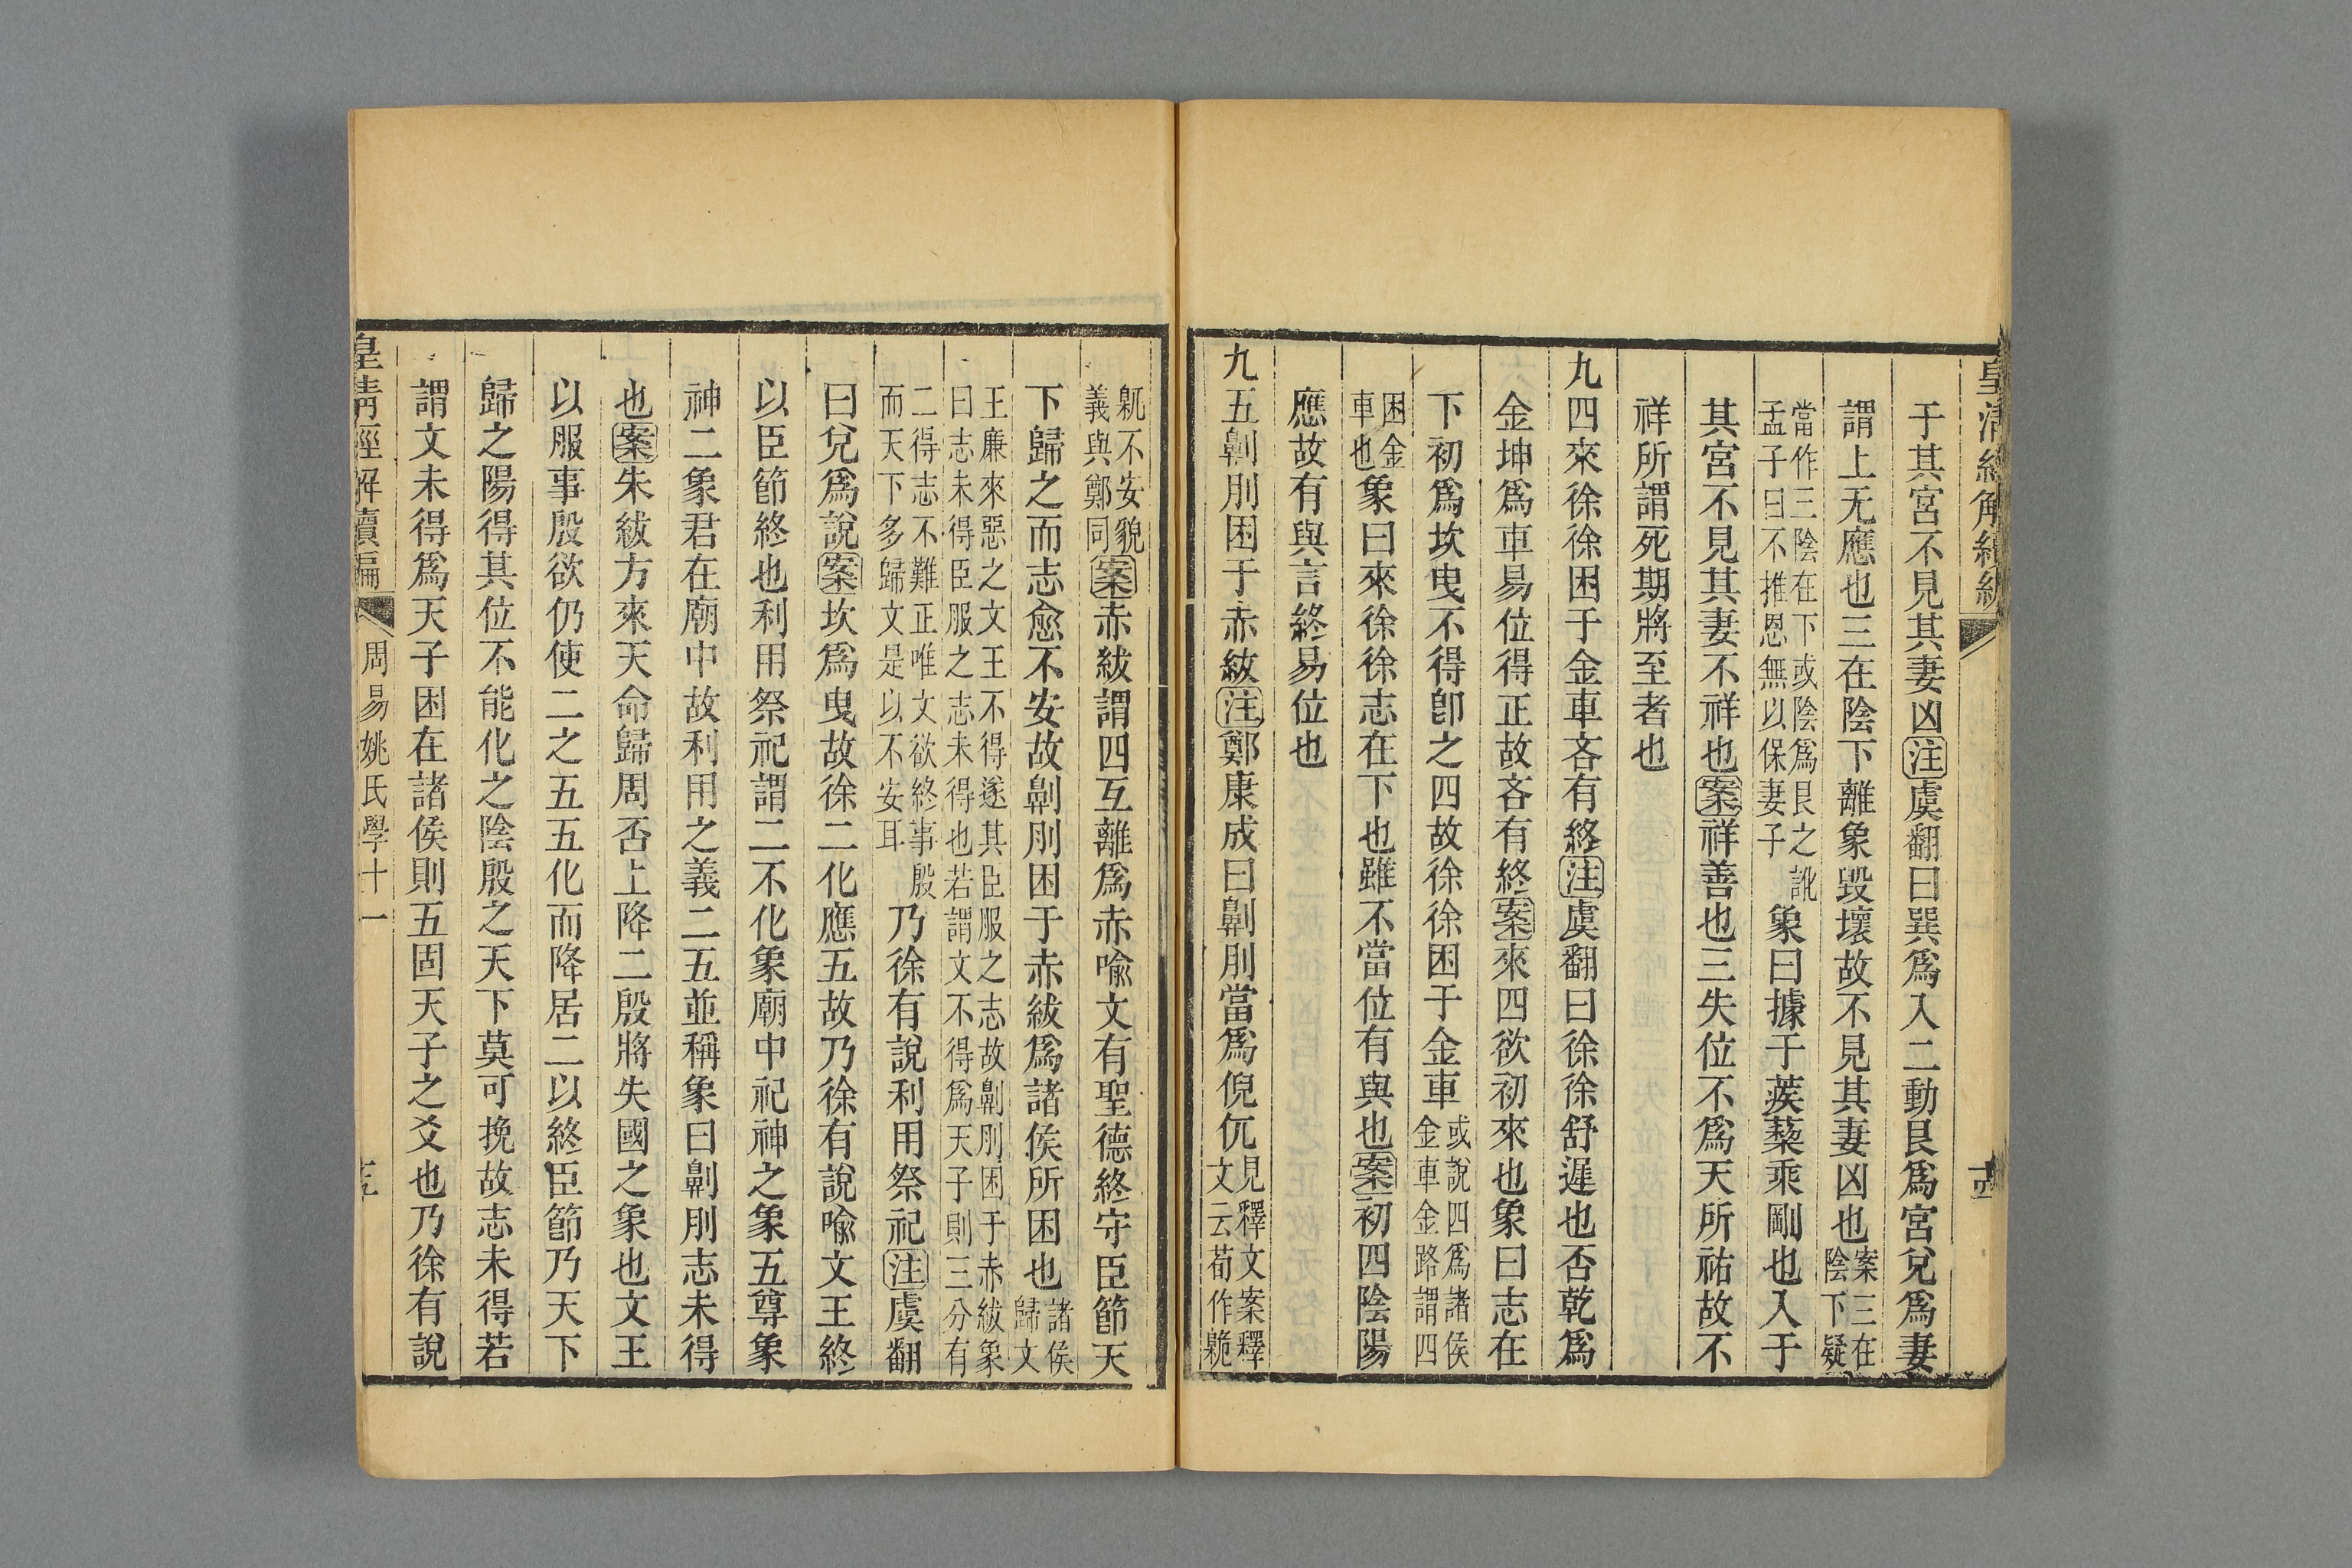 皇清經解續編
于其宮不見其妻凶注虞翻曰巽爲入二動艮爲宮兌爲妻
謂上无應也三在陰下離象毀壞故不見其妻凶也案三在陰下疑
當作三陰在下或陰爲艮之訛孟子曰不推恩無以保妻子象曰據于蒺藜乘剛也入于
其宮不見其妻不祥也案祥善也三失位不爲天所祐故不
祥所謂死期將至者也
九四來徐徐困于金車吝有終注虞翻曰徐徐舒遲也否乾爲
金坤爲車易位得正故吝有終案來四欲初來也象曰志在
下初爲坎曳不得卽之四故徐徐困于金車或說四爲諸侯金車金路謂四
困金車也象曰來徐徐志在下也雖不當位有與也案初四陰陽
應故有與言終易位也
九五劓刖困于赤紱注鄭康成曰劓刖當爲倪㐳見釋文案釋文云荀作臲
臲不安貌義與鄭同案赤紱謂四互離爲赤喻文有聖德終守臣節天
下歸之而志愈不安故劓刖困于赤紱爲諸侯所困也諸侯歸文
王廉來惡之文王不得遂其臣服之志故劓刖困于赤紱象曰志未得臣服之志未得也若謂文不得爲天子則三分有
二得志不難正唯文欲終事殷而天下多歸文是以不安耳乃徐有說利用祭祀注虞翻
曰兌爲說案坎爲曳故徐二化應五故乃徐有說喻文王終
以臣節終也利用祭祀謂二不化象廟中祀神之象五尊象
神二象君在廟中故利用之義二五並稱象曰劓刖志未得
也案朱紱方來天命歸周否上降二殷將失國之象也文王
以服事殷欲仍使二之五五化而降居二以終臣節乃天下
歸之陽得其位不能化之陰殷之天下莫可挽故志未得若
謂文未得爲天子困在諸侯則五固天子之爻也乃徐有說
皇清經解續編 周易姚氏學十一